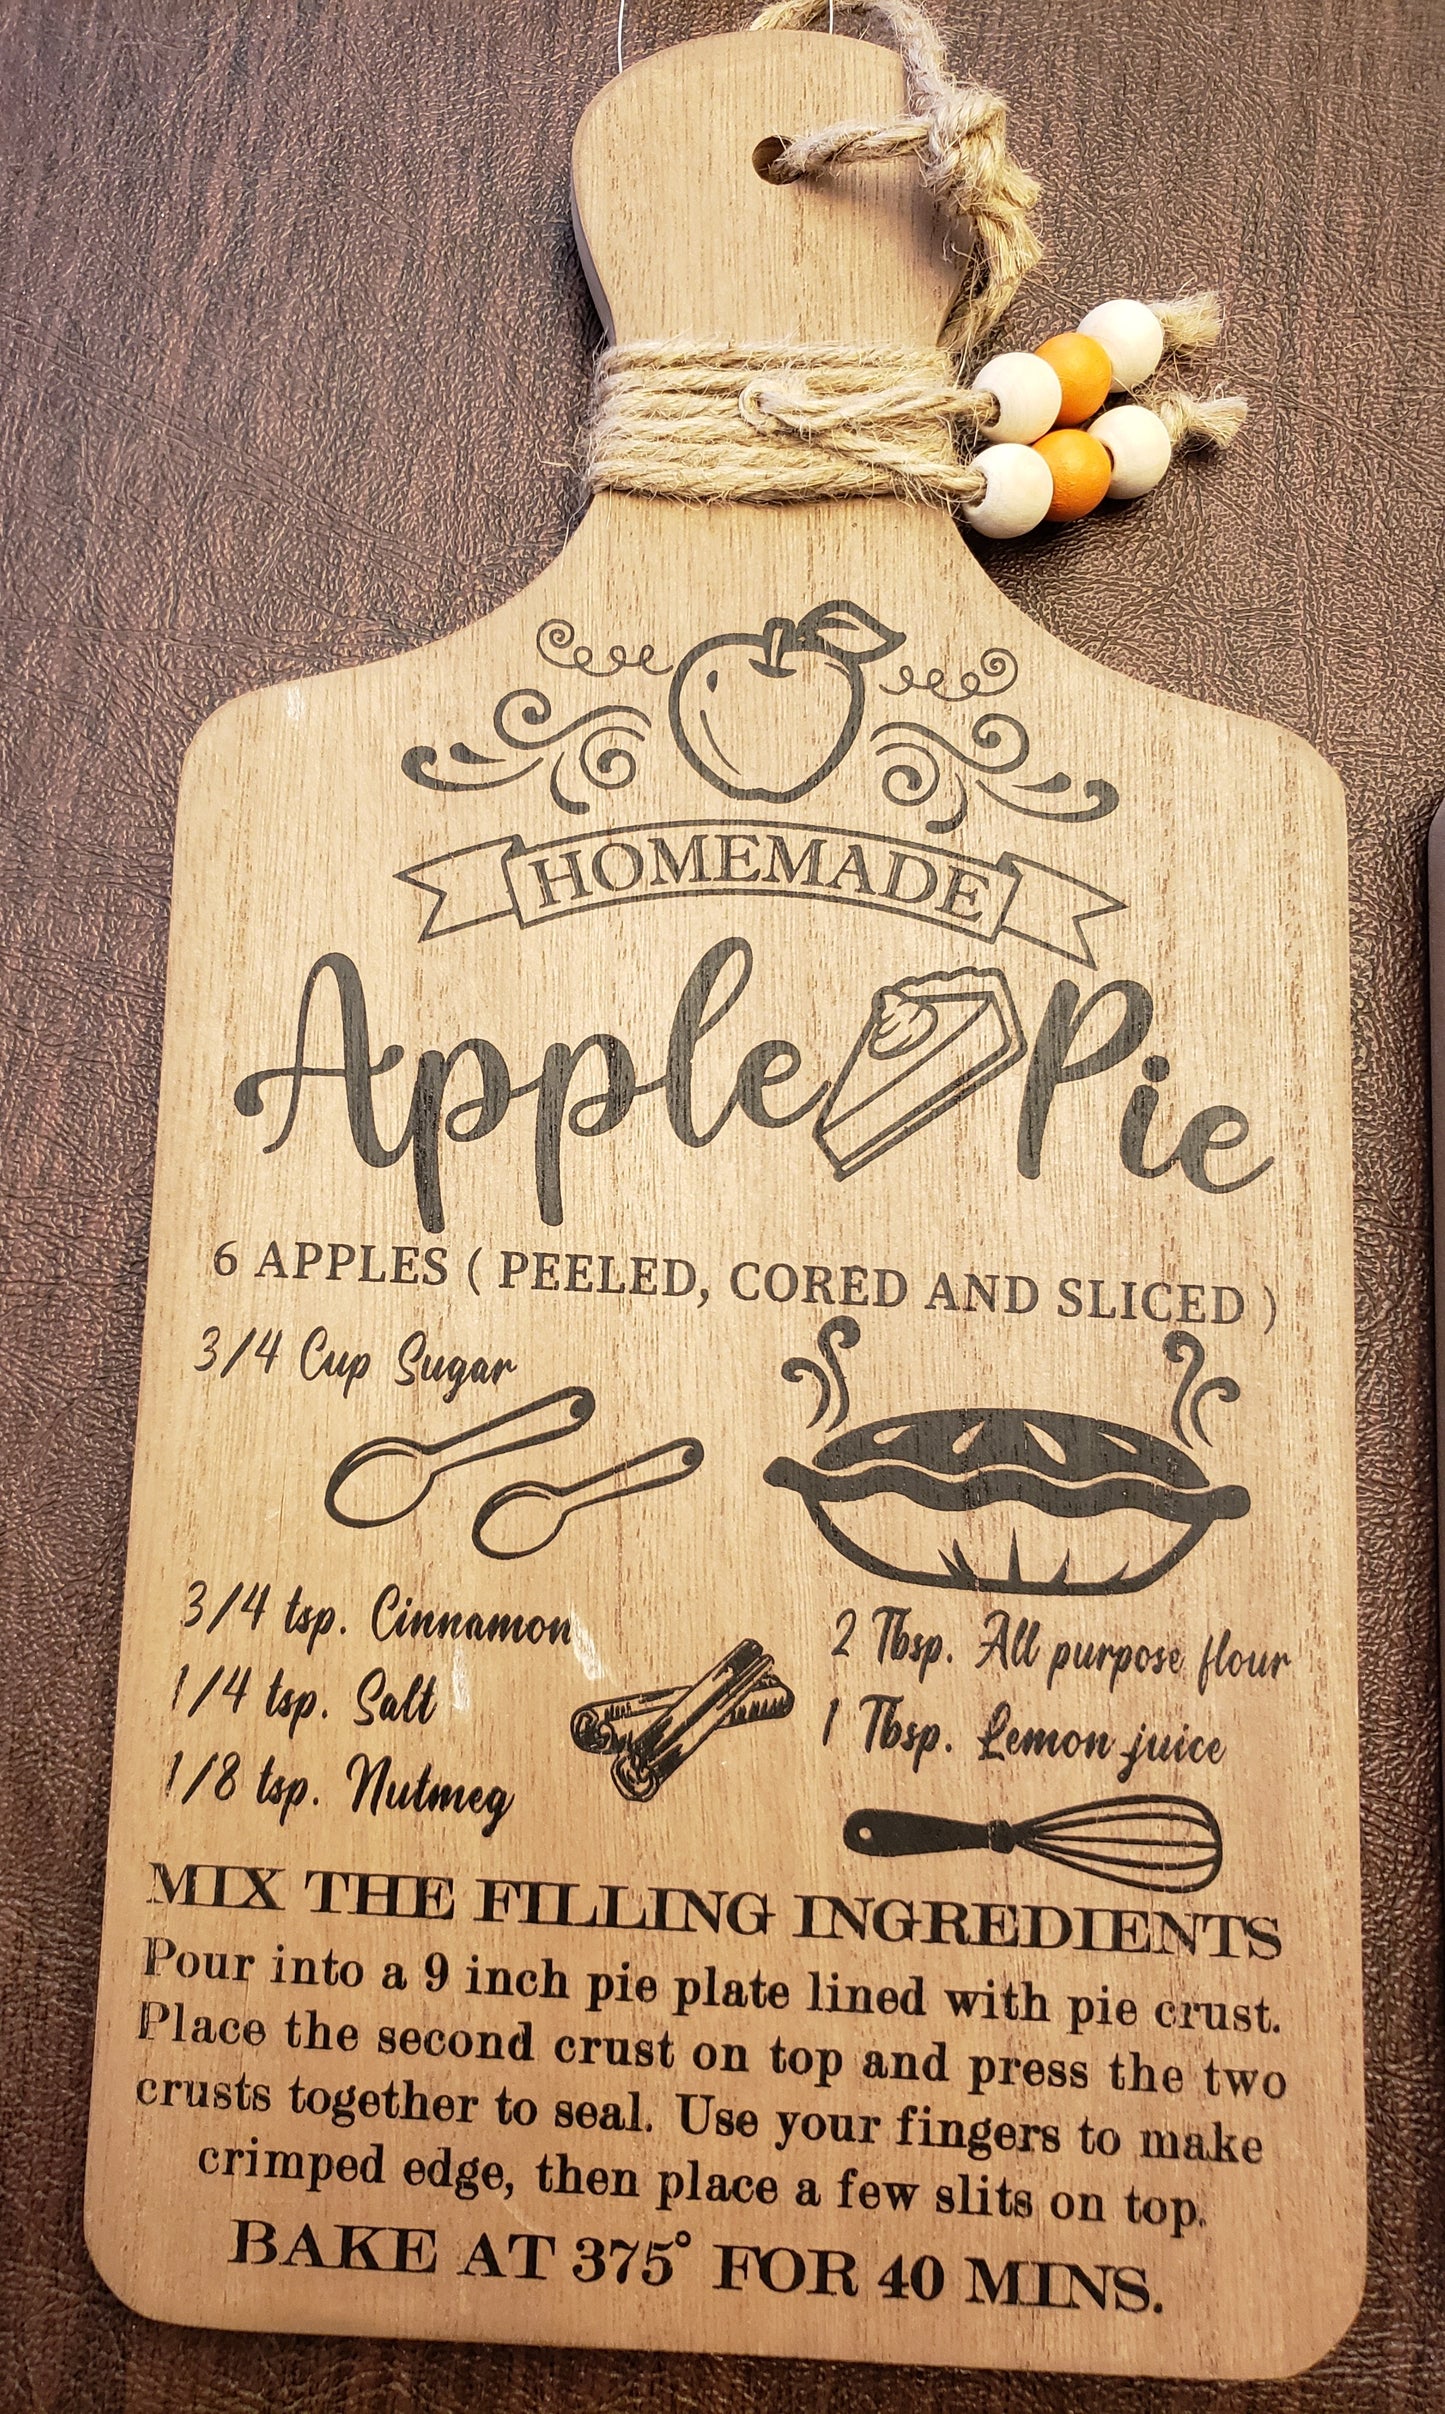 HOMEMADE
Apple Pie
6 APPLES ( PEELED, CORED AND SLICED )
3/4 Cup Sugar
3/4 tsp. Cinnamon
1/4 tsp. Salt
1/8 tsp. Nutmeg
2 Tbsp. All purpose flour
1 Tbsp. Lemon juice
MIX THE FILLING INGREDIENTS
Pour into a 9 inch pie plate lined with pie crust.
Place the second crust on top and press the two
crusts together to seal. Use your fingers to make
crimped edge, then place a few slits on top.
BAKE AT 375° FOR 40 MINS.